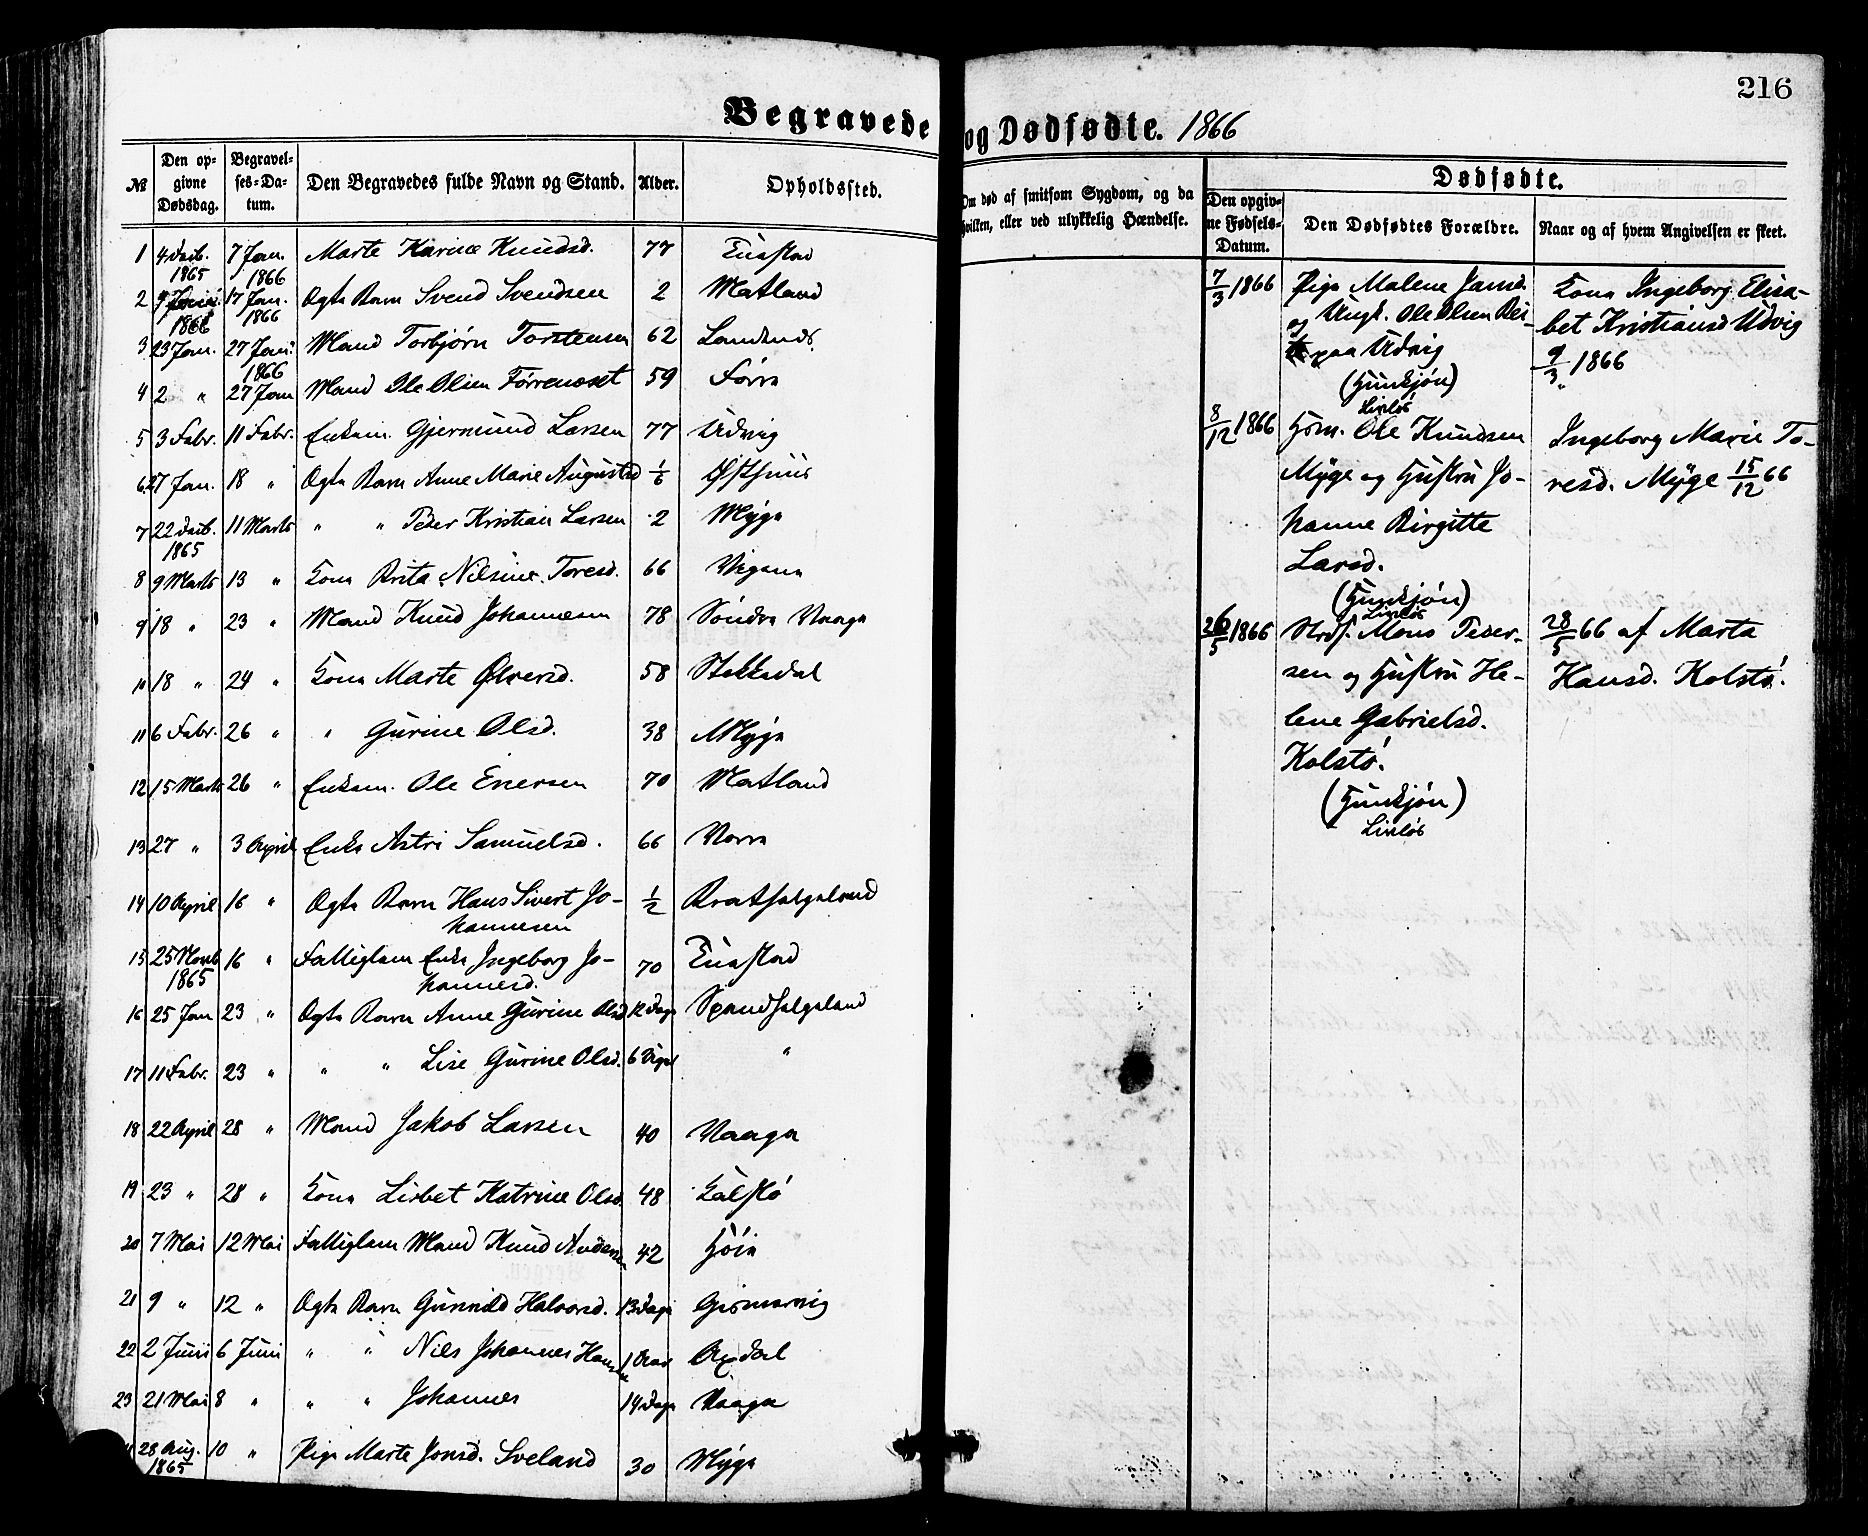 216
Begravede og Dødfødte. 1866
№ Den opgivne Dødsdag. Begravelses-Datum. Den Begravedes fulde Navn og Stand. Alder. Opholdssted.
1 4 Decb. 1865 7 Jan. 1866 Marte Karine Knudsd. 77 Tuastad
2 9 1866 17 Jan. 1866 Ægte Barn Svend Svendsen 2 Matland
3 23 Jan. 27 Jan. 1866 Mand Torbjørn Torstensen 62
4 2 " 27 Jan Mand Ole Olsen Førrenæset 59 Førre
5 3 Febr. 11 Febr. Enkem. Gjermund Larsen 77 Udvig
6 27 Jan. 18 " Ægte Barn Anne Marie Augustsd 1/6 Østhuus
7 22 Decb. 1865 11 Marts " " Peder Kristian Larsen 2 Myge
8 9 Marts 13 " Kone Brita Nilsine Toresd. 66
9 18 " 23 " Mand Knud Johannesen 78 Søndre Vaage
10 18 " 24 " Kone Marte Ølversd. 58 Stakkedal
11 6 Febr. 26 " " Gurine Olsd. 38 Myge
12 15 Marts 26 " Enkem. Ole Enersen 70 Matland
13 27 " 3 April Enke Astri Samuelsd. 66
14 10 April 16 " Ægte Barn Hans Sivert Johannesen 1/2 Bratthelgeland
15 25 1865 16 " Fattiglem Enke Ingeborg Johannesd. 70 Tuastad
16 25 Jan 23 " Ægte Barn Anne Gurine Olsd 12 Dage Spandhelgeland
17 11 Febr. 23 " " " Lise Gurine Olsd. 6 Uger "
18 22 April 28 " Mand Jakob Larsen 40 Vaage
19 23 " 28 " Kone Lisbet Katrine Olsd. 48 Kalstø
20 7 Mai 12 Mai Fattiglem Mand Knud Andersen 42 Høie
21 9 " 12 " Ægte Barn Gunnild Halvorsd. 13 Dage Gismarvig
22 2 Juni 6 Juni " " Nils Johannes Hansen 1 Aar Axdal
23 21 Mai 8 " " " Johannes 14 Dage Vaage
28 Aug. 1865 10 " Pige Marte Jonsd. Sveland 30 Myge
Om død af smitsom Sygdom, og da
hvilken, eller ved ulykkelig Hændelse.
Dødfødte.
Den opgivne Fødsels-Datum. Den Dødfødtes Forældre. Naar og af hvem Angivelsen er skeet.
7/3 1866 Pige Malene Jansd. Kone Ingeborg Elisa-
og Ungk. Ole Olsen bet Kristiansd Udvig
paa Udvig 9/3 1866
(Hunkjøn)
Livløs
8/12 1866 Hsm. Ole Knudsen Ingeborg Marie To-
Myge og Hustru Jo- resd. Myge 15/12 66
hanne Birgitte
Larsd.
(Hunkjøn)
Livløs
26/5 1866 Strds. Mons Peder- 28/5 66 af Marta
sen og Hustru He- Hansd. Kolstø.
lene Gabrielsd.
Kolstø.
(Hunkjøn)
Livløs